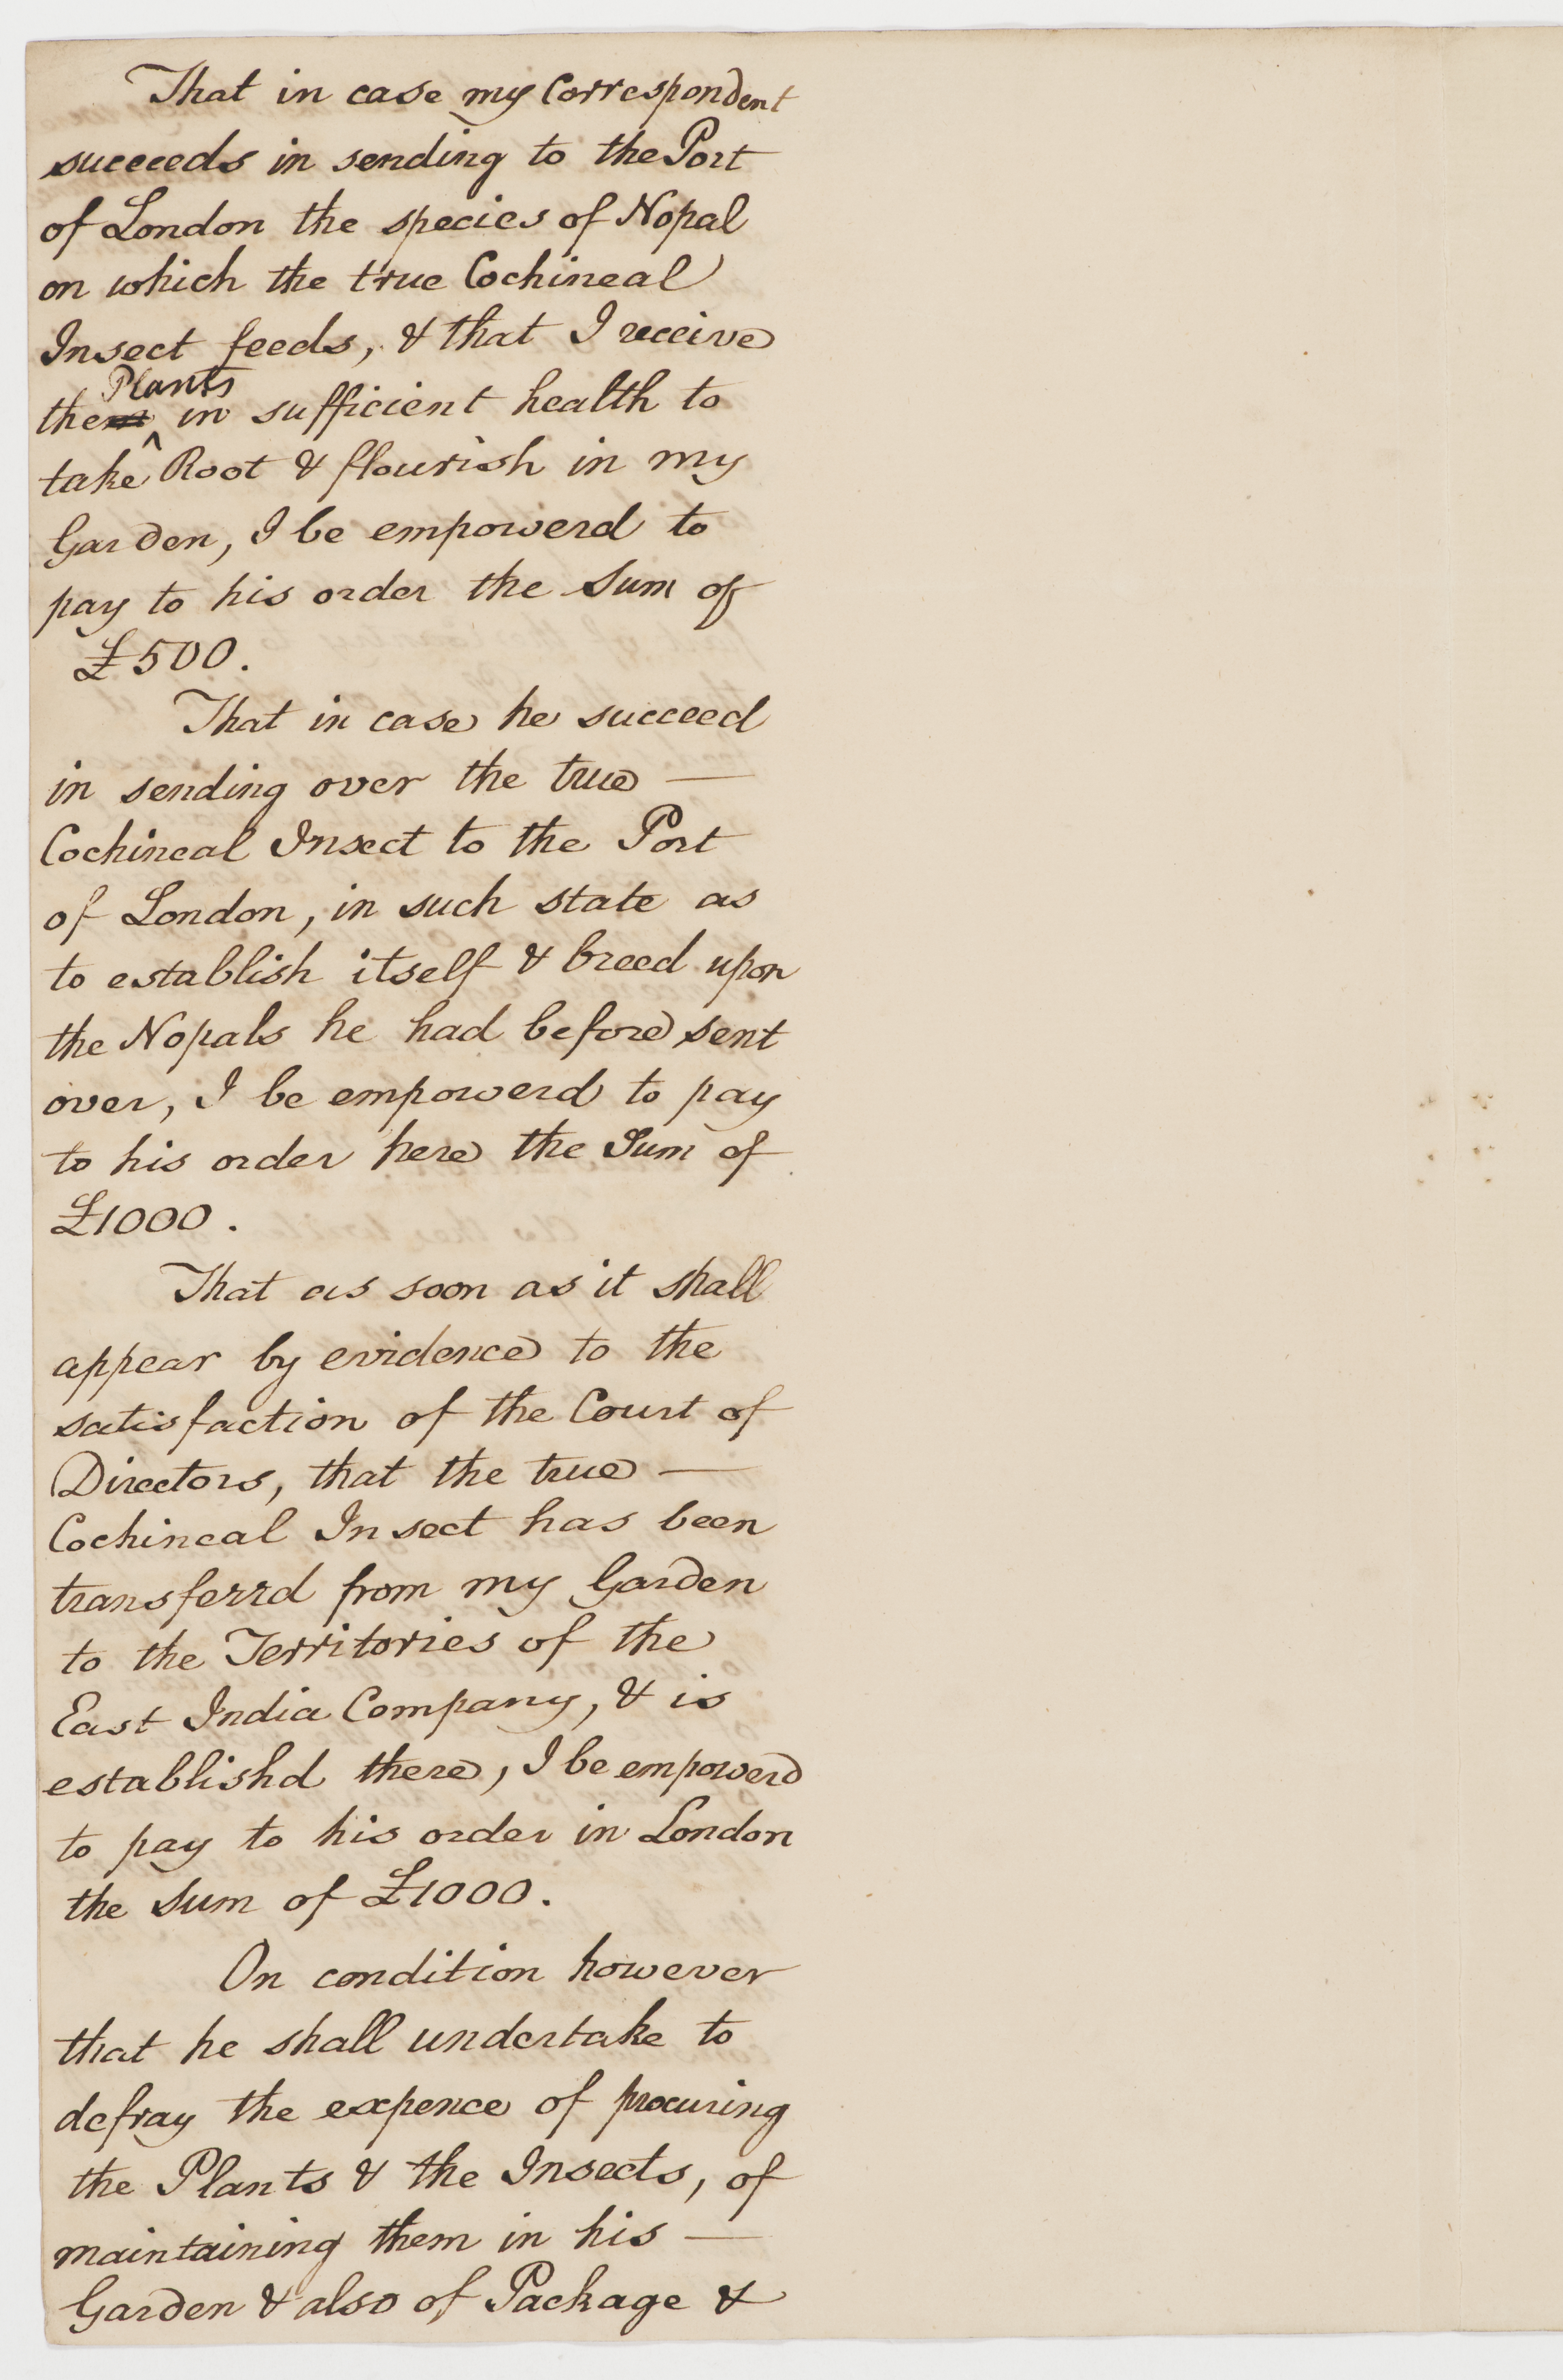 That in case my Correspondent
succeeds in sending to the Port
of London the species of Nopal
on which the true Cochineal
Insect feeds, & that I receive
Plants
them in sufficient health to
take Root & flourish in my
Garden, I be empowerd to
pay to his order the Sum of
£500.
That in case he succeed
in sending over the true —
Cochineal Insect to the Port
of London, in such state as
to establish itself & breed upon
the Nopals he had before sent
over, I be empowerd to pay
to his order here the Sum of
£1000.
That as soon as it shall
appear by evidence to the
satisfaction of the Court of
Directors, that the true —
Cochineal Insect has been
transferrd from my Garden
to the Territories of the
East India Company, & is
establishd there, I be empowerd
to pay to his order in London
the Sum of £1000.
On condition however
that he shall undertake to
defray the expence of procuring
the Plants & the Insects, of
maintaining them in his —
Garden & also of Package &